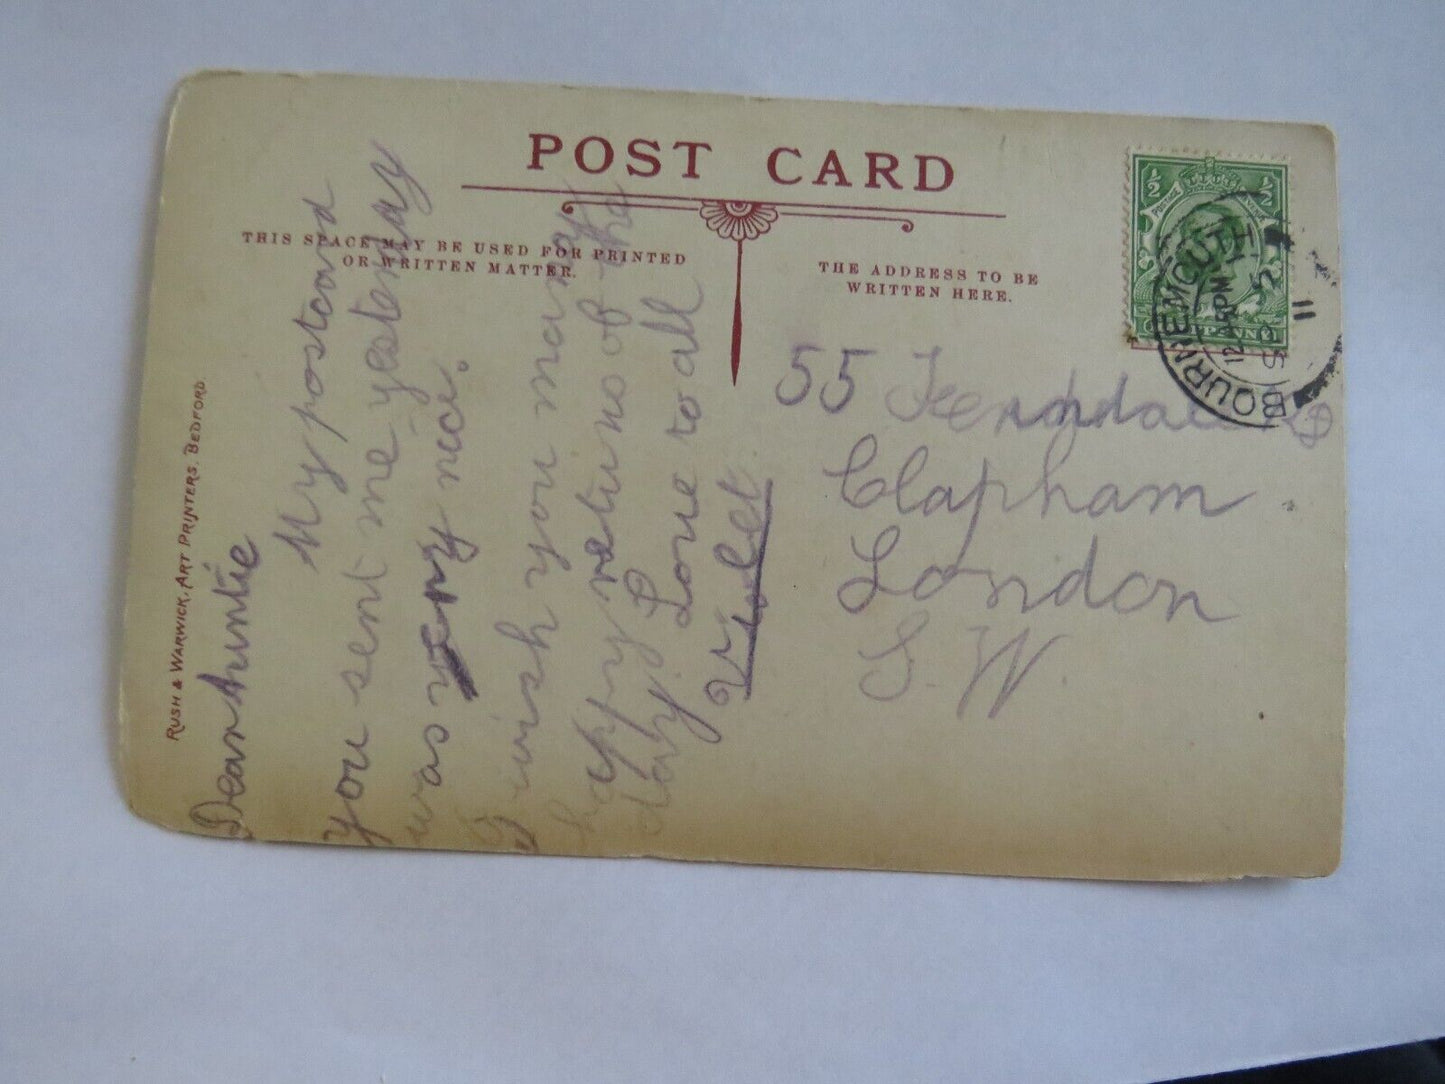 POST CARD
THIS SPACE MAY BE USED FOR PRINTED
OR WRITTEN MATTER.
THE ADDRESS TO BE
WRITTEN HERE.
RUSH & WARWICK, ART PRINTERS. BEDFORD
Dear Auntie
My postcard
you sent me yesterday
was very nice.
I wish you many
happy returns of the
day. Love to all
Violet
55
Clapham
London
S. W.
BOURNEMOUTH
SP 2
11
½ ½